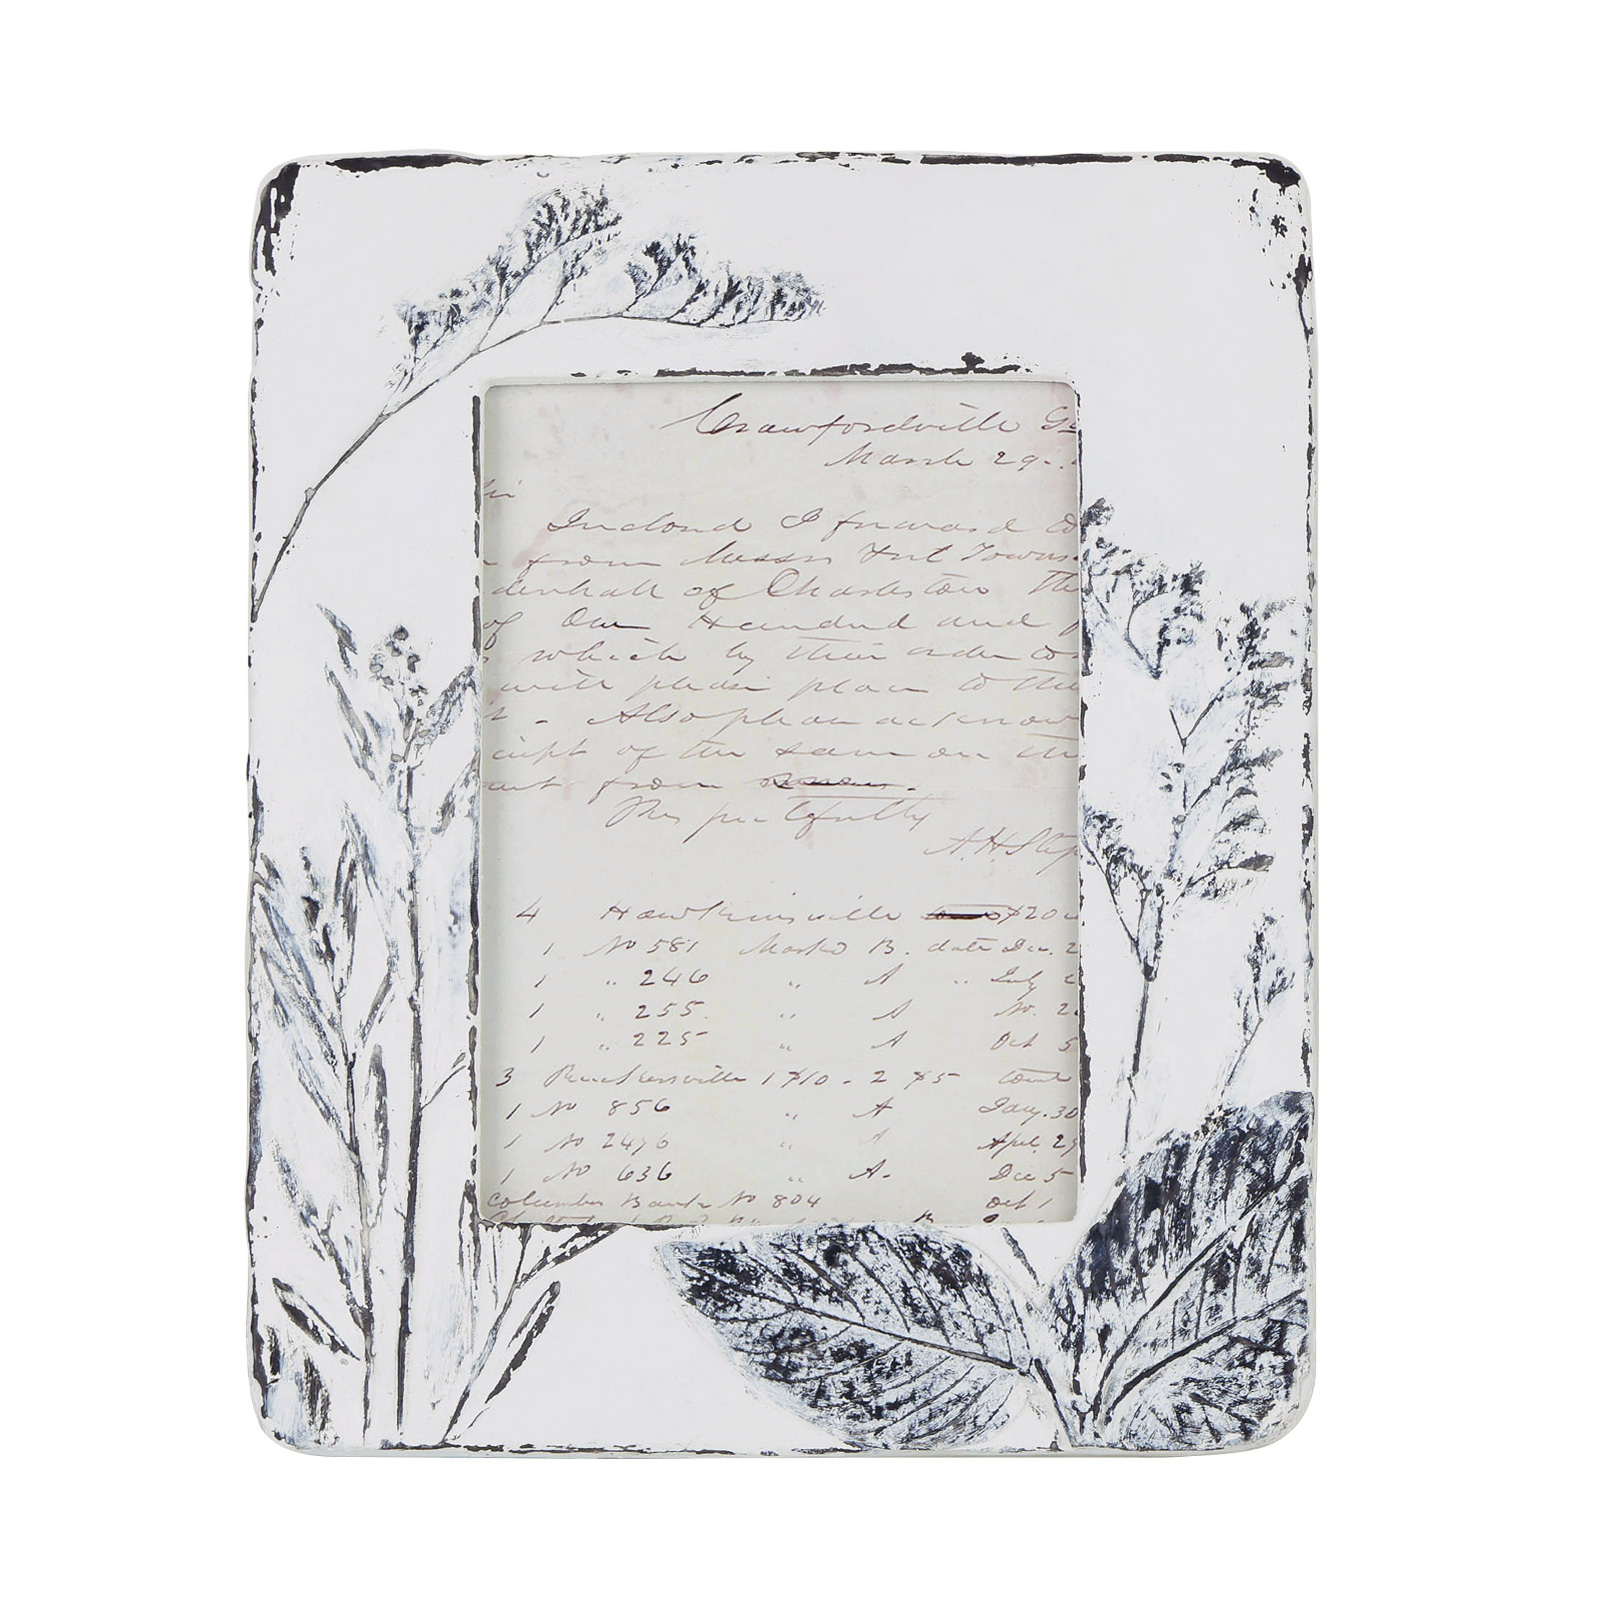 Crawfordville Ga
March 29
Inclosed I forward
from Messrs Townse
denhall of Charleston The
of One Hundred and
which by their order
will please place to the
Also please acknow
ceipt of the same on the
from
Respectfully
A.H. Step
4 Hawkinsville $20
1 No 581 Marked B. date Dec. 2
1 " 246 " A " July
1 " 255 " A No. 2
1 " 225 " A Oct 5
3 Ruckersville 1 $10 - 2 $5
1 No 856 " A Jany. 30
1 No 2496 " A Apel. 29
1 No 636 " A. Dec 5
Columbus Bank No 804 Oct 1